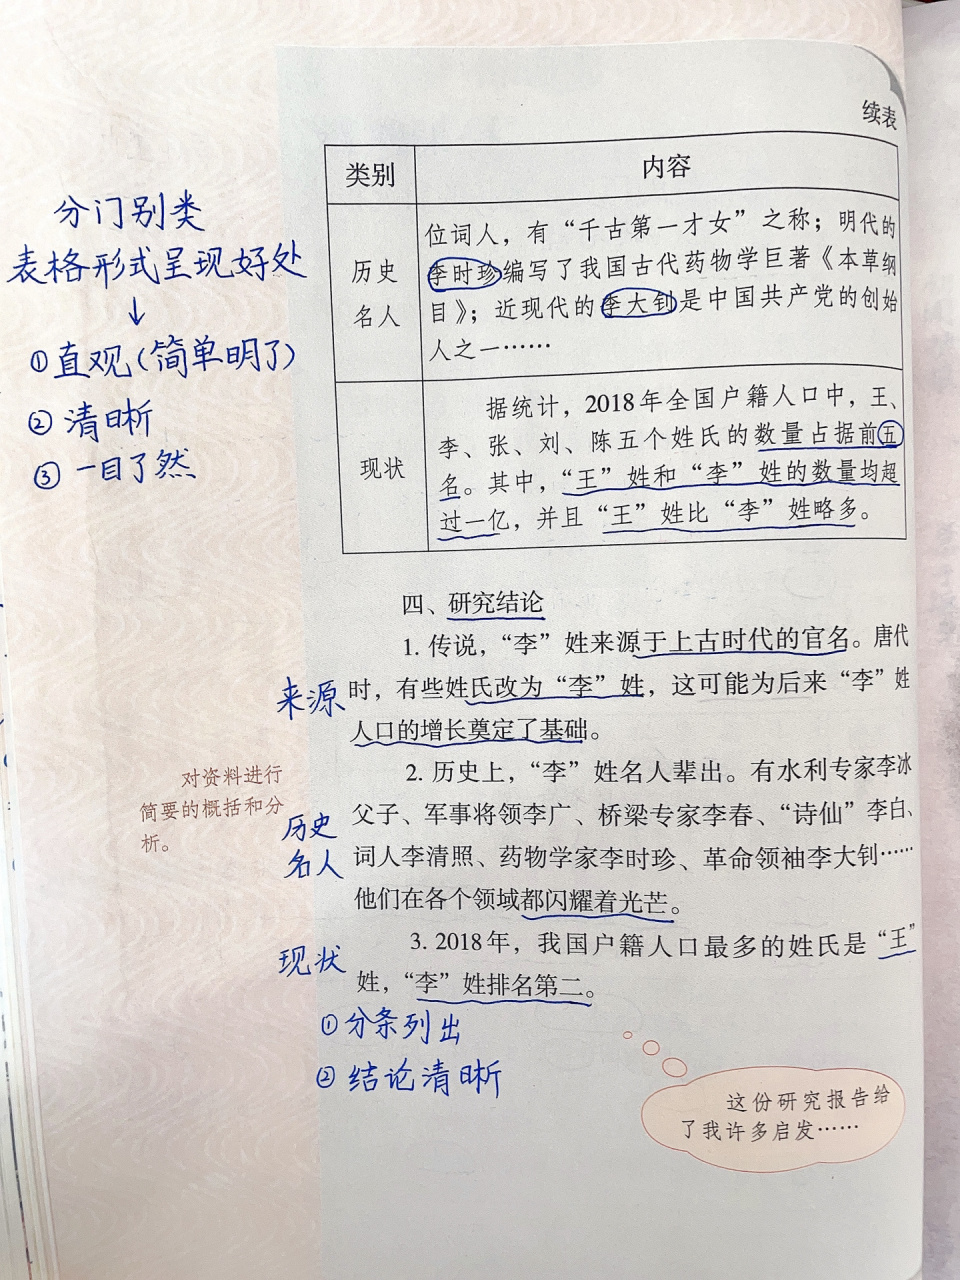 续表
类别 内容
历史
名人
位词人，有“千古第一才女”之称；明代的
李时珍编写了我国古代药物学巨著《本草纲
目》；近现代的李大钊是中国共产党的创始
人之一……
现状
据统计，2018年全国户籍人口中，王、
李、张、刘、陈五个姓氏的数量占据前五
名。其中，“王”姓和“李”姓的数量均超
过一亿，并且“王”姓比“李”姓略多。
分门别类
表格形式呈现好处
↓
①直观（简单明了）
②清晰
③一目了然
四、研究结论
1. 传说，“李”姓来源于上古时代的官名。唐代
时，有些姓氏改为“李”姓，这可能为后来“李”姓
人口的增长奠定了基础。
来源
2. 历史上，“李”姓名人辈出。有水利专家李冰
父子、军事将领李广、桥梁专家李春、“诗仙”李白、
词人李清照、药物学家李时珍、革命领袖李大钊……
他们在各个领域都闪耀着光芒。
历史
名人
对资料进行
简要的概括和分
析。
3. 2018年，我国户籍人口最多的姓氏是“王”
姓，“李”姓排名第二。
现状
①分条列出
②结论清晰
这份研究报告给
了我许多启发……